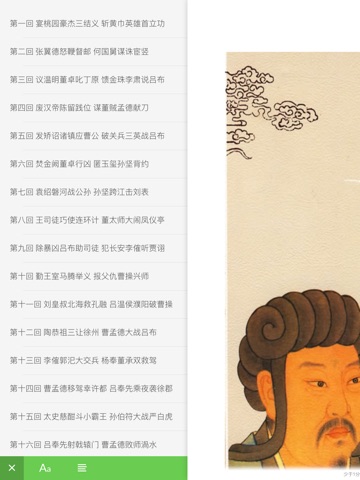 第一回 宴桃园豪杰三结义 斩黄巾英雄首立功
第二回 张翼德怒鞭督邮 何国舅谋诛宦竖
第三回 议温明董卓叱丁原 馈金珠李肃说吕布
第四回 废汉帝陈留践位 谋董贼孟德献刀
第五回 发矫诏诸镇应曹公 破关兵三英战吕布
第六回 焚金阙董卓行凶 匿玉玺孙坚背约
第七回 袁绍磐河战公孙 孙坚跨江击刘表
第八回 王司徒巧使连环计 董太师大闹凤仪亭
第九回 除暴凶吕布助司徒 犯长安李傕听贾诩
第十回 勤王室马腾举义 报父仇曹操兴师
第十一回 刘皇叔北海救孔融 吕温侯濮阳破曹操
第十二回 陶恭祖三让徐州 曹孟德大战吕布
第十三回 李傕郭汜大交兵 杨奉董承双救驾
第十四回 曹孟德移驾幸许都 吕奉先乘夜袭徐郡
第十五回 太史慈酣斗小霸王 孙伯符大战严白虎
第十六回 吕奉先射戟辕门 曹孟德败师淯水
Aa